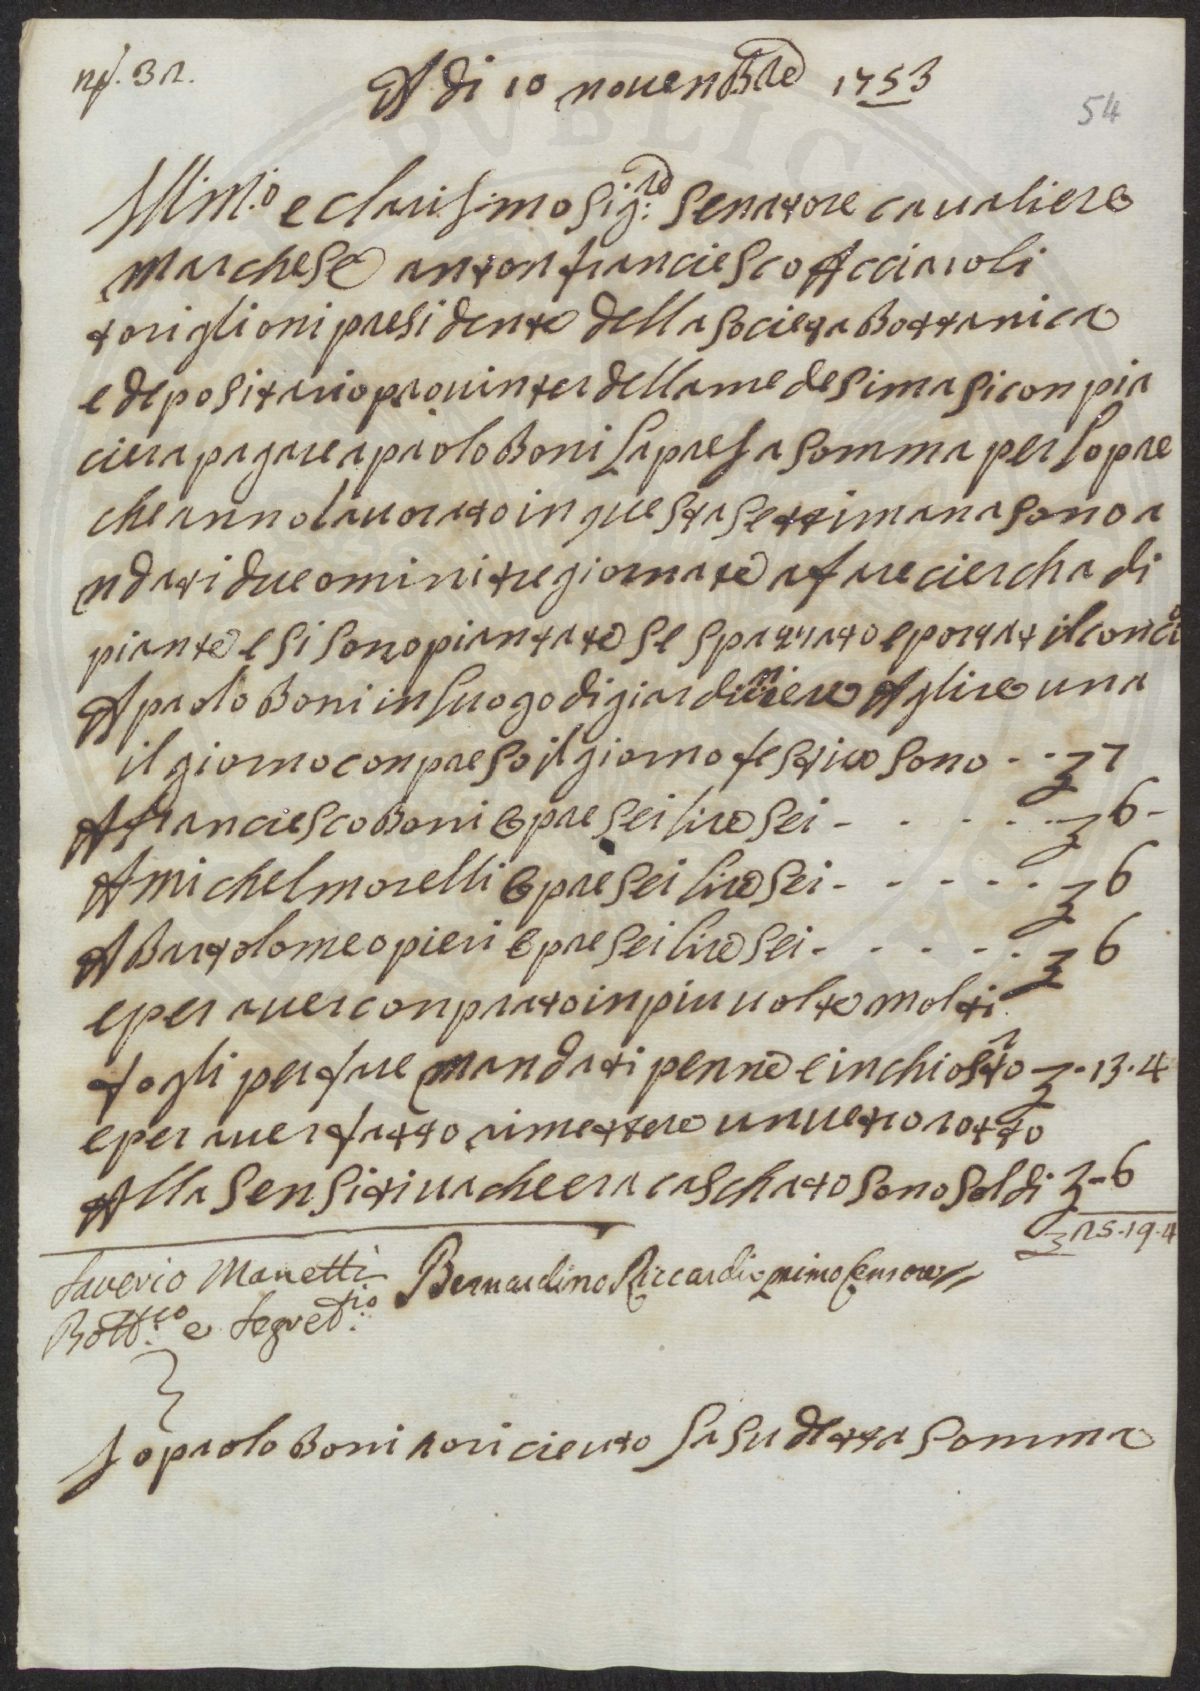 n.° 32.
A di 10 novenbre 1753
54
Illm.o e clarissimo Sig.re Senatore cavaliere
marchese anton franciesco Acciaioli
toriglioni presidente della Società Bottanica
e depositario pro interdellamedesima si conpia
ciera pagare a paolo Boni la presa somma per lopre
che anno lavorato in questa settimana sono a
ndati due omini tre giornate a fare ciercha di
piante e si sono piantate se spazzato e portat il concio
A paolo Boni in luogo di giardiniere A lire una
il giorno conpreso il giorno festivo sono - - £ 7
A franciesco Boni opre sei lire sei - - - - - £ 6 -
A michel morelli opre sei lire sei - - - - - £ 6
A Bartolomeo pieri opre sei lire sei - - - - - £ 6
e per aver conprato in piu volte molti
fogli per fare mandati penne e inchiostro £ - 13 - 4
e per aver fatto rimettere un vetro rotto
Alla Sensitiva che era caschato sono soldi £ - 6
£ 25 - 19 - 4
Saverio Manetti Bernardino Riccardi primo Censore
Bott.co e Segret.rio
Io paolo Boni o ricievto la su detta somma